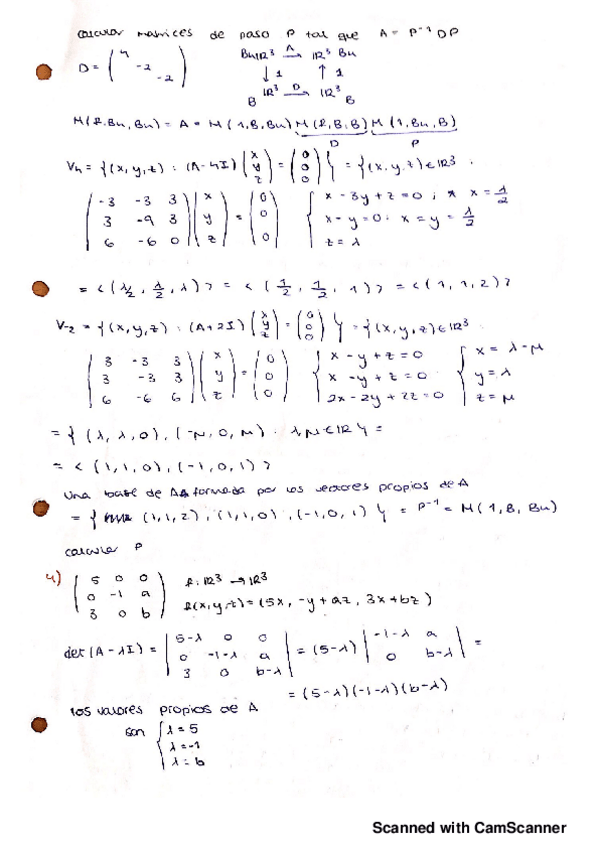 calcular matrices de paso P tal que A = P⁻¹ D P
D = ( 4 -2 -2 )
Bu ℝ³ →A ℝ³ Bu
↓ 1 ↑ 1
B ℝ³ →D ℝ³ B
M(f, Bu, Bu) = A = M(1, B, Bu) M(f, B, B) M(1, Bu, B)
D P
V₄ = {(x, y, z) : (A-4I) (x y z) = (0 0 0)} = {(x, y, z) ∈ ℝ³ :
( -3 -3 3 ) ( x ) = ( 0 ) { x - 3y + z = 0 ; x = λ/2
( 3 -9 3 ) ( y ) ( 0 ) { x - y = 0 : x = y = λ/2
( 6 -6 0 ) ( z ) ( 0 ) { z = λ
= < (λ/2, λ/2, λ) > = < (1/2, 1/2, 1) > = < (1, 1, 2) >
V₋₂ = {(x, y, z) : (A+2I) (x y z) = (0 0 0)} = {(x, y, z) ∈ ℝ³ :
( 3 -3 3 ) ( x ) = ( 0 ) { x - y + z = 0 { x = λ - μ
( 3 -3 3 ) ( y ) ( 0 ) { x - y + z = 0 { y = λ
( 6 -6 6 ) ( z ) ( 0 ) { 2x - 2y + 2z = 0 { z = μ
= { (λ, λ, 0), (-μ, 0, μ) . λ, μ ∈ ℝ } =
= < (1, 1, 0), (-1, 0, 1) >
Una base de formada por los vectores propios de A
= { (1, 1, 2), (1, 1, 0), (-1, 0, 1) } = P⁻¹ = M(1, B, Bu)
calcular P
4) ( 5 0 0 ) f: ℝ³ → ℝ³
( 0 -1 a ) f(x, y, z) = (5x, -y + az, 3x + bz)
( 3 0 b )
det(A - λI) = | 5-λ 0 0 | = (5-λ) | -1-λ a | =
| 0 -1-λ a | | 0 b-λ |
| 3 0 b-λ |
= (5-λ)(-1-λ)(b-λ)
los valores propios de A
son { λ = 5
{ λ = -1
{ λ = b
Scanned with CamScanner